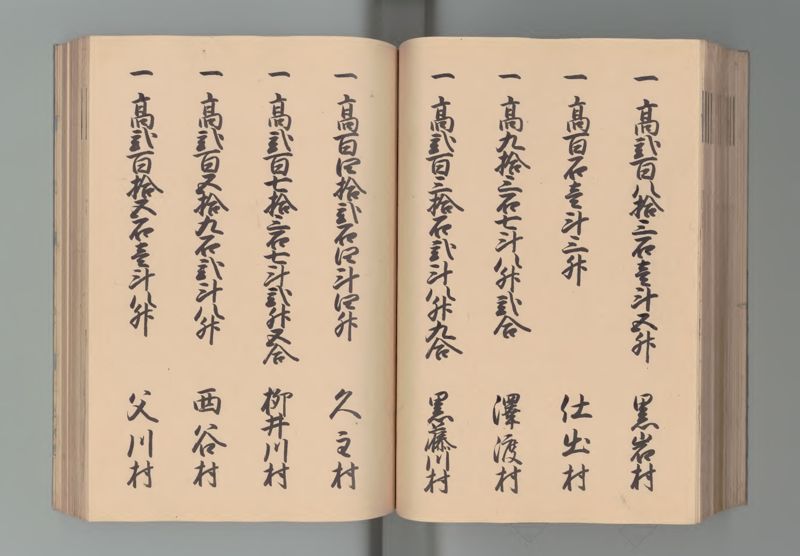 一 高弐百八拾三石壱斗五升 黒岩村
一 高百石壱斗三升 仕出村
一 高九拾三石七斗八升弐合 澤渡村
一 高弐百三拾石弐斗八升九合 黒藤川村
一 高百四拾弐石四斗四升 久主村
一 高弐百七拾三石七斗弐升五合 柳井川村
一 高弐百五拾九石弐斗八升 西谷村
一 高弐百拾五石壱斗八升 父川村